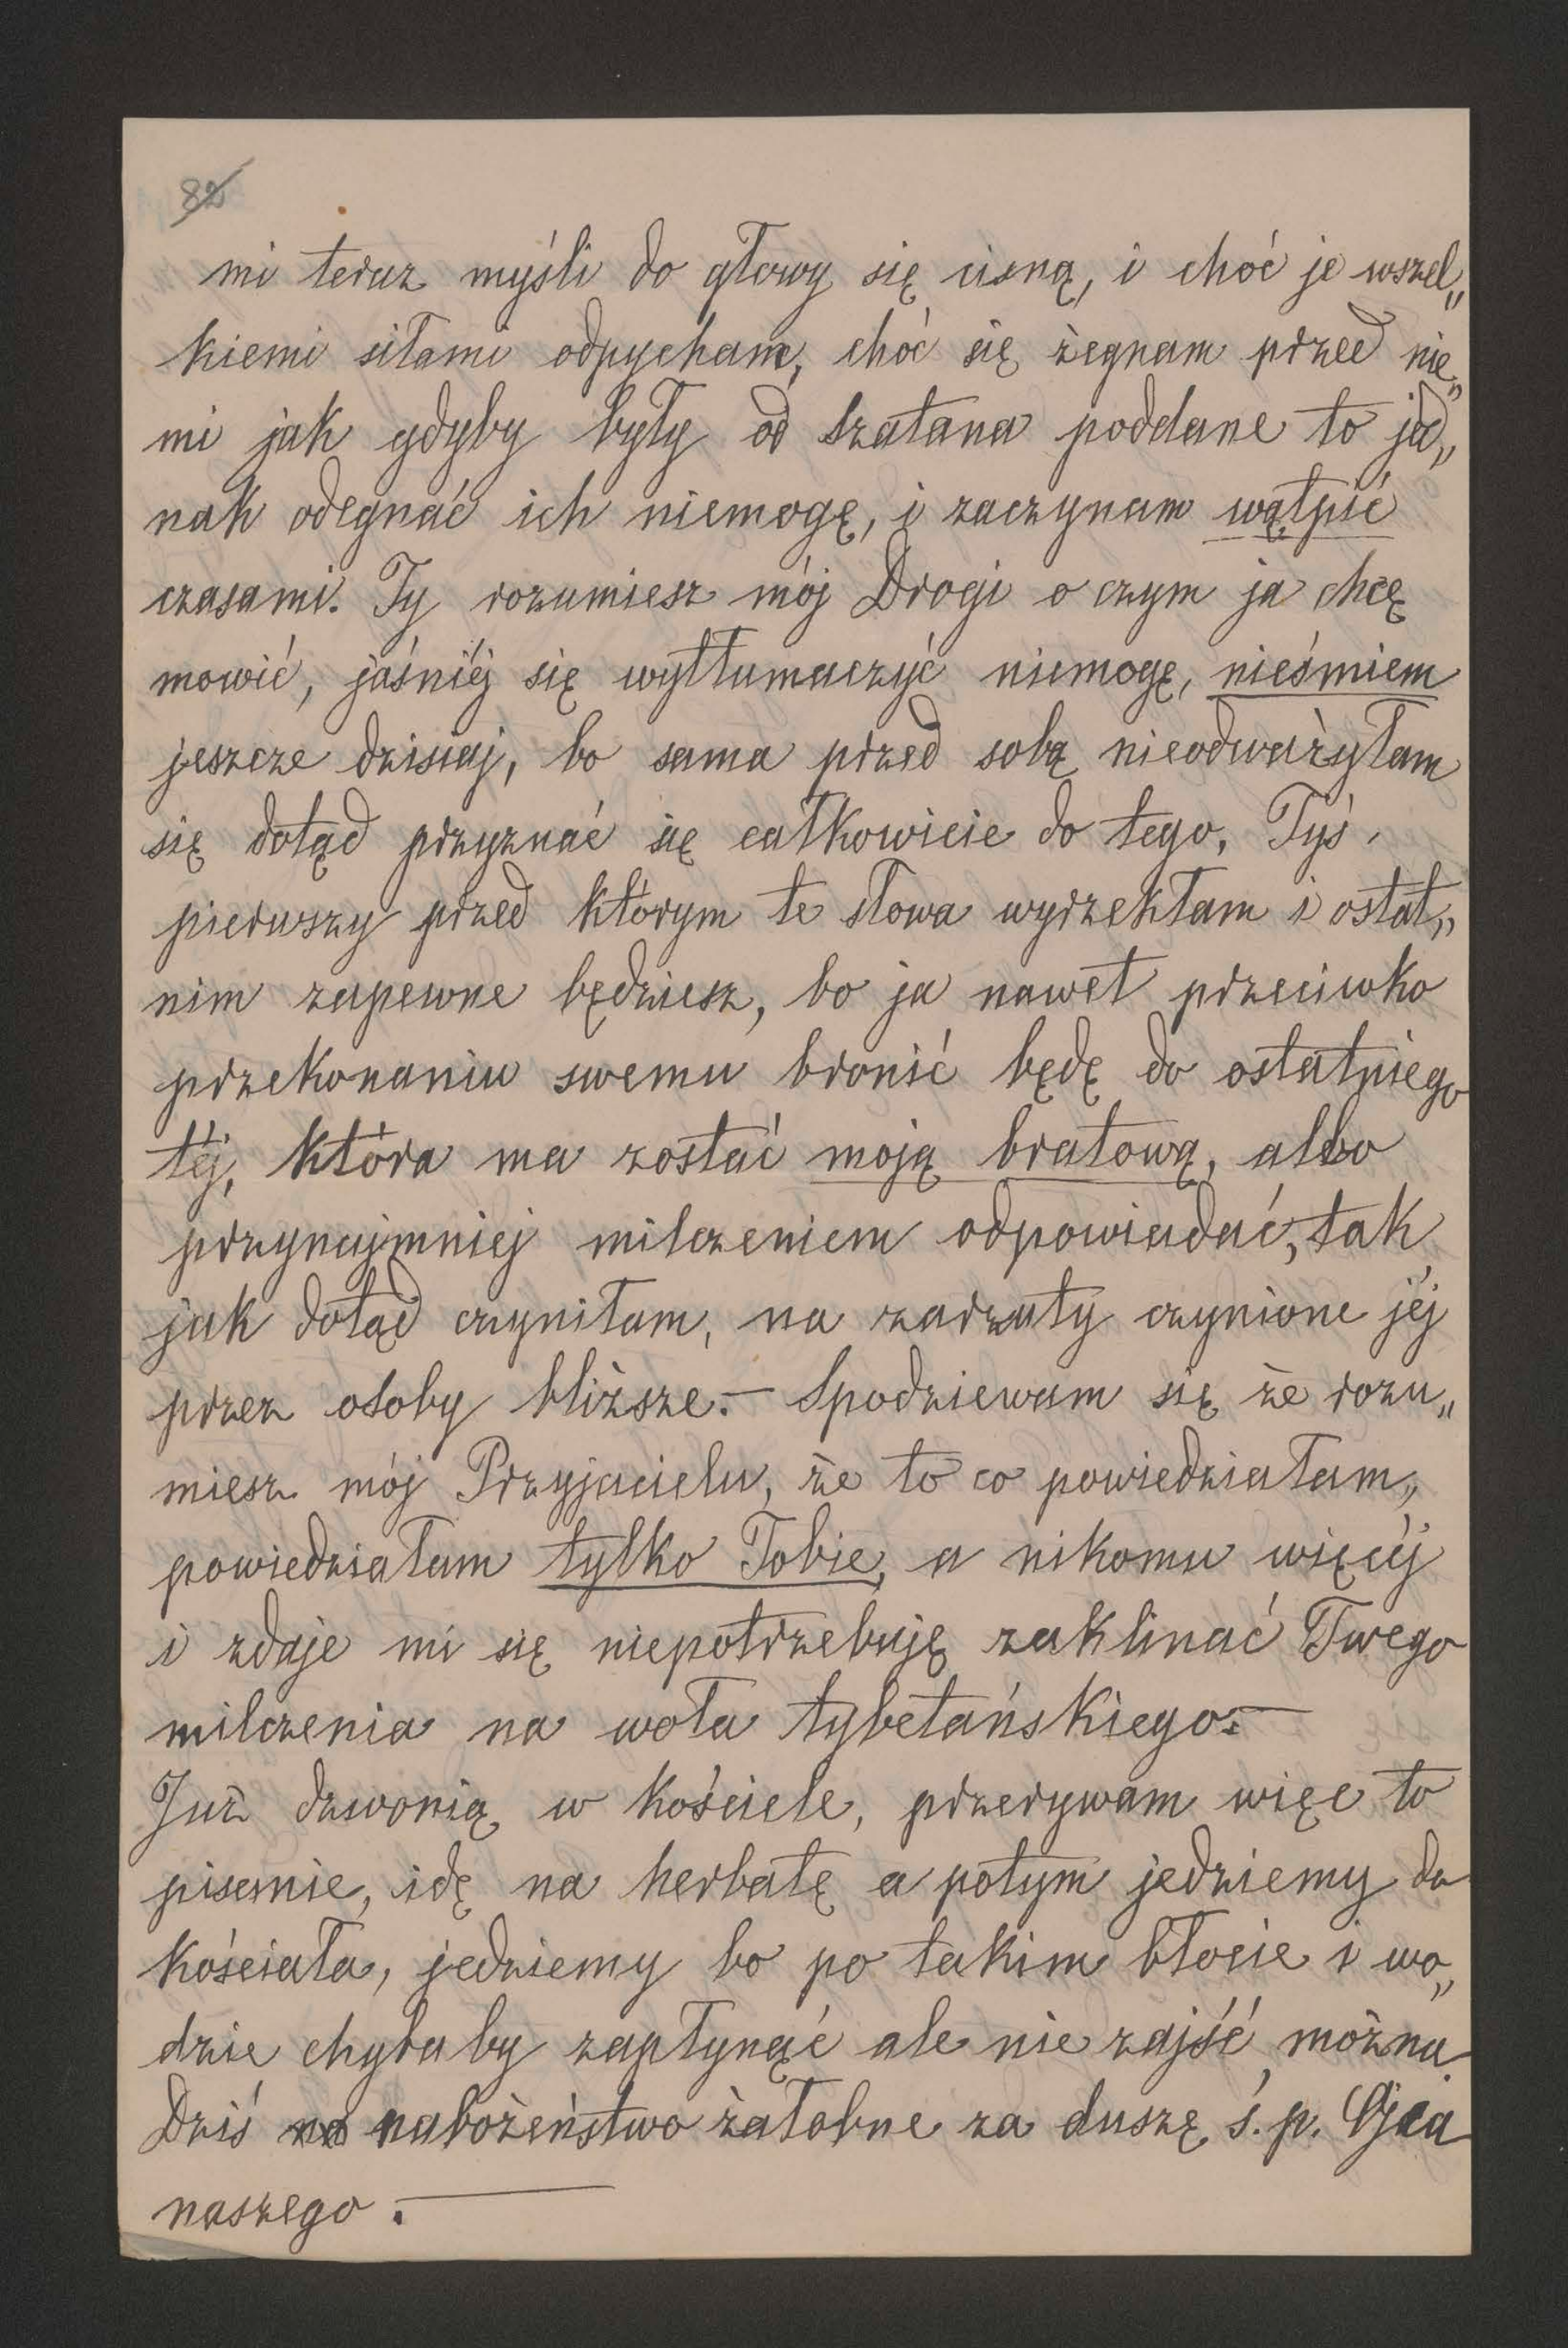 82
mi teraz myśli do głowy się cisną, i choć je wszel„
kiemi siłami odpycham, choć się żegnam przed nie„
mi jak gdyby były od szatana poddane to jed„
nak odegnać ich niemogę, i zaczynam wątpić
czasami. Ty rozumiesz mój Drogi o czym ja chcę
mowić, jaśniéj się wytłumaczyć niemogę, nieśmiem
jeszcze dzisiaj, bo sama przed sobą nieodważyłam
się dotąd przyznać się całkowicie do tego. Tyś
pierwszy przed którym te słowa wyrzekłam i ostat„
nim zapewne będziesz, bo ja nawet przeciwko
przekonaniu swemu bronić będę do ostatniego
téj, która ma zostać moją bratową, albo
przynajmniej milczeniem odpowiadać, tak
jak dotąd czyniłam, na zarzuty czynione jéj
przez osoby bliższe.— Spodziewam się że rozu„
miesz mój Przyjacielu, że to co powiedziałam,
powiedziałam tylko Tobie, a nikomu więcéj
i zdaje mi się niepotrzebuję zaklinać Twego
milczenia na woła tybetańskiego.—
Już dzwonią w kościele, przerywam więc to
pisemie, idę na herbatę a potym jedziemy do
kościała, jedziemy bo po takim błocie i wo„
dzie chyba by zapłynąć ale nie zajść można.
Dziś nabożeństwo żałobne za duszę ś. p. Ojca
naszego.—